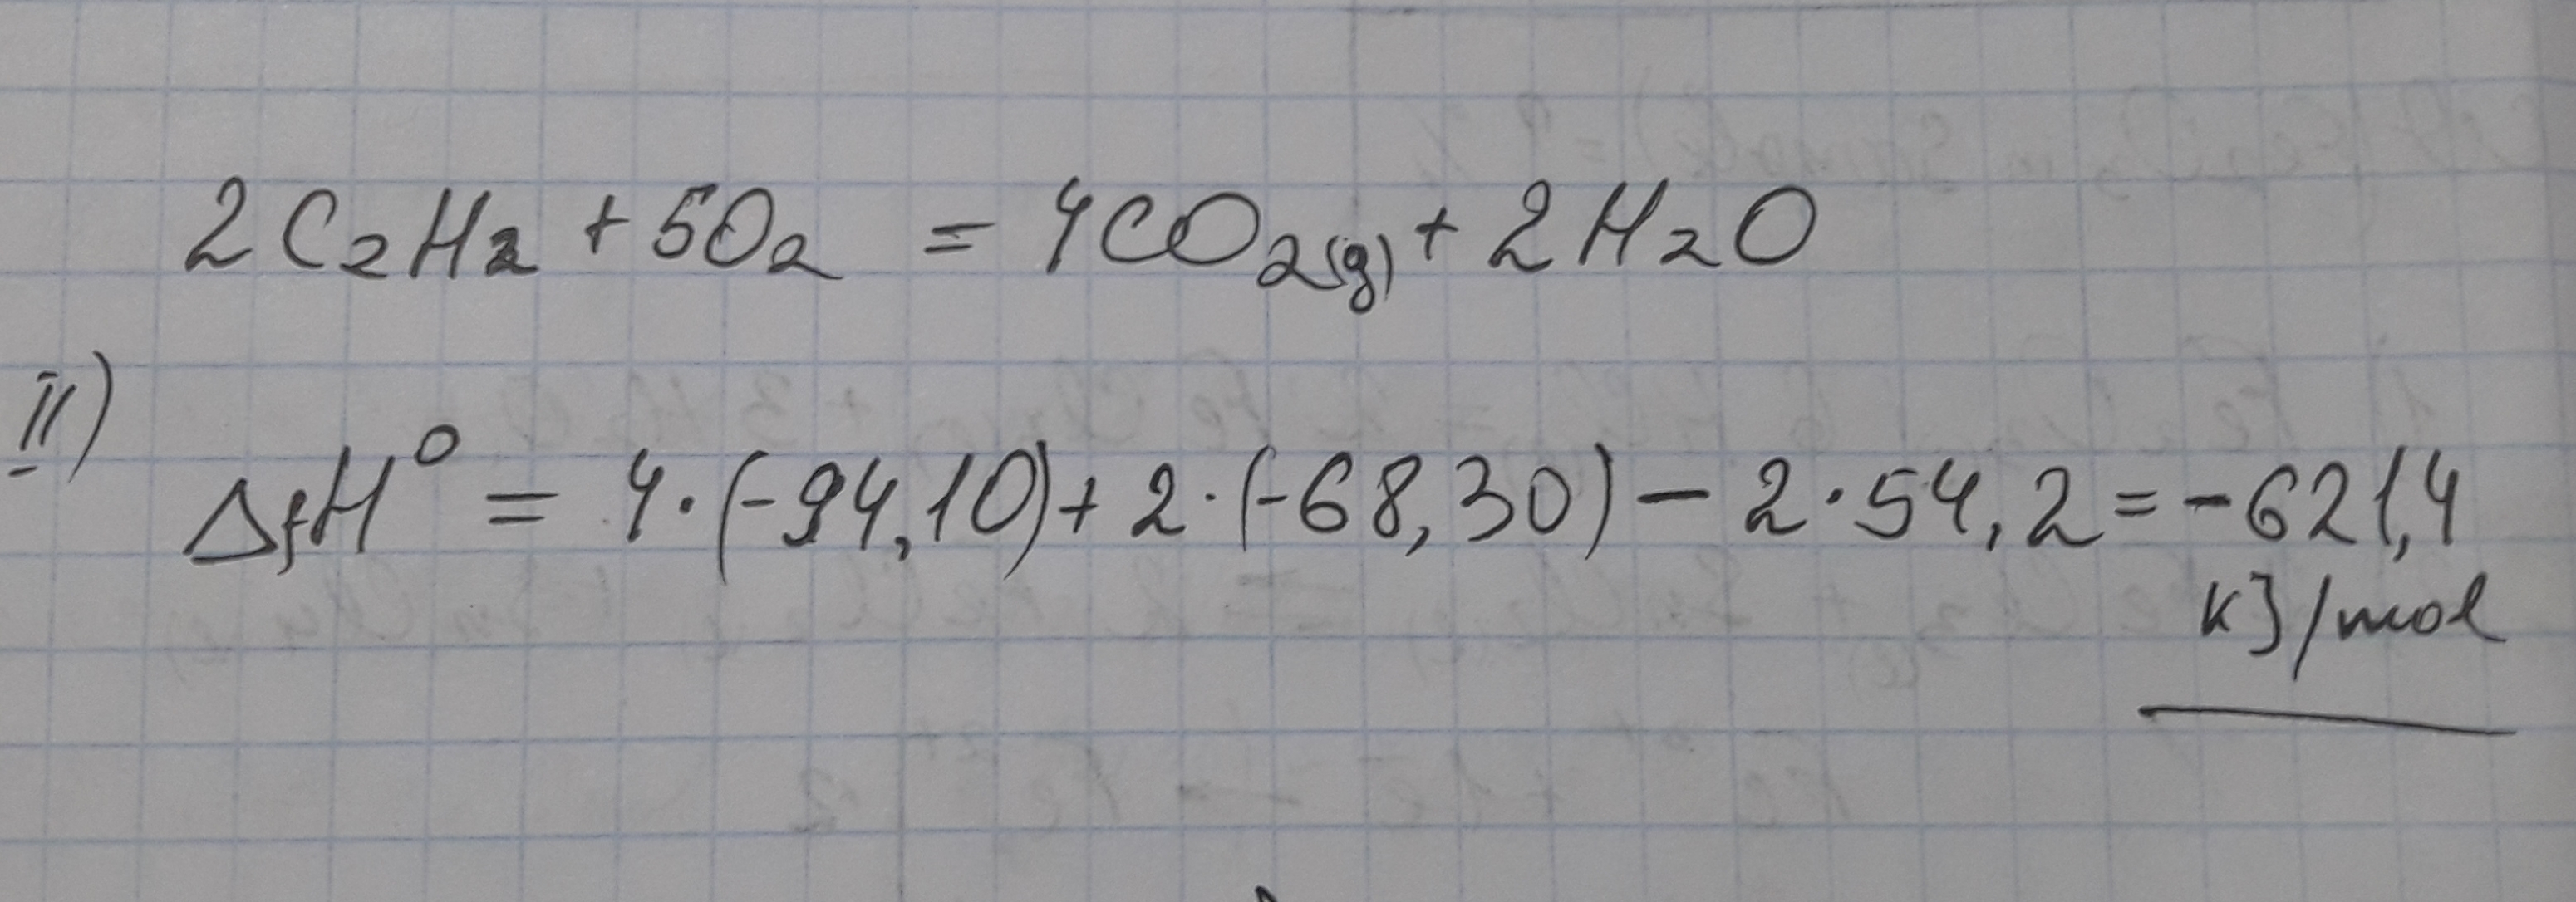 2C₂H₂ + 5O₂ = 4CO₂(g) + 2H₂O
II)
ΔfH⁰ = 4·(-94,10) + 2·(-68,30) - 2·54,2 = -621,4
kJ/mol